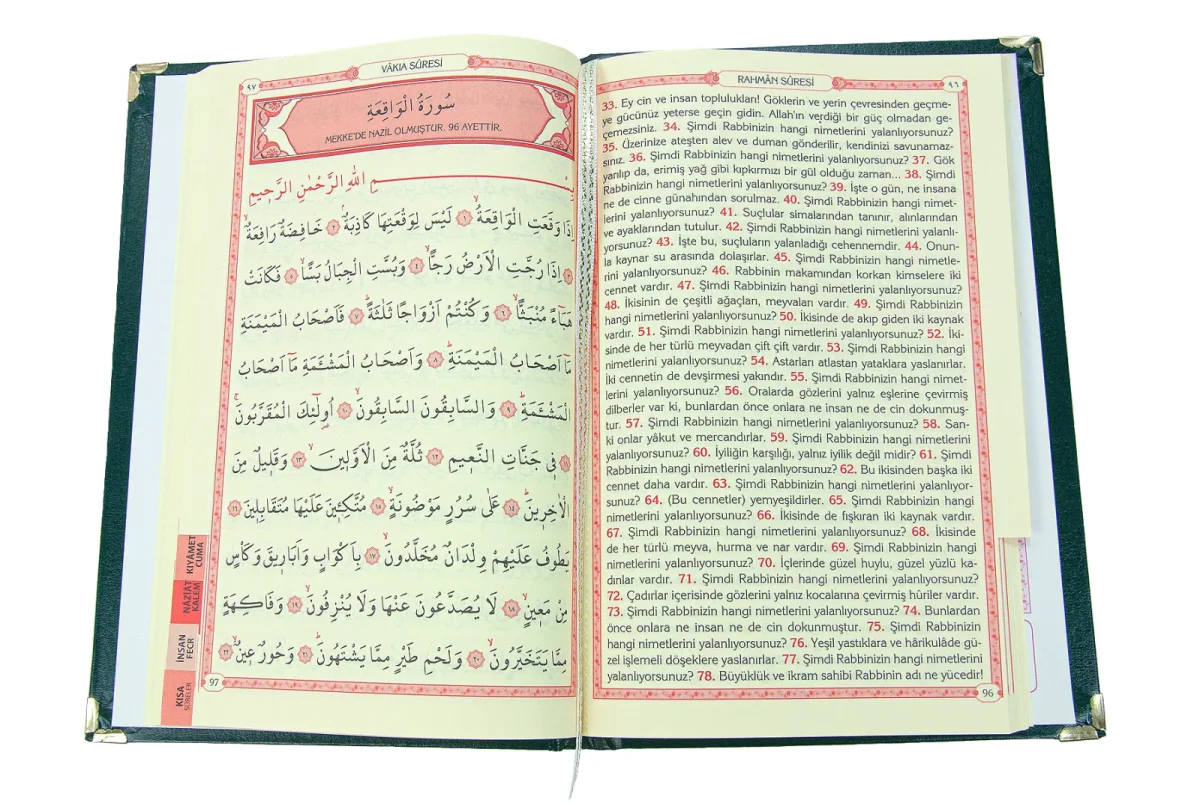 RAHMÂN SÛRESİ
٩٦
33. Ey cin ve insan toplulukları! Göklerin ve yerin çevresinden geçme-
ye gücünüz yeterse geçin gidin. Allah'ın verdiği bir güç olmadan ge-
çemezsiniz. 34. Şimdi Rabbinizin hangi nimetlerini yalanlıyorsunuz?
35. Üzerinize ateşten alev ve duman gönderilir, kendinizi savunamaz-
sınız. 36. Şimdi Rabbinizin hangi nimetlerini yalanlıyorsunuz? 37. Gök
yarılıp da, erimiş yağ gibi kıpkırmızı bir gül olduğu zaman... 38. Şimdi
Rabbinizin hangi nimetlerini yalanlıyorsunuz? 39. İşte o gün, ne insana
ne de cinne günahından sorulmaz. 40. Şimdi Rabbinizin hangi nimet-
lerini yalanlıyorsunuz? 41. Suçlular simalarından tanınır, alınlarından
ve ayaklarından tutulur. 42. Şimdi Rabbinizin hangi nimetlerini yalanlı-
yorsunuz? 43. İşte bu, suçluların yalanladığı cehennemdir. 44. Onun-
la kaynar su arasında dolaşırlar. 45. Şimdi Rabbinizin hangi nimetle-
rini yalanlıyorsunuz? 46. Rabbinin makamından korkan kimselere iki
cennet vardır. 47. Şimdi Rabbinizin hangi nimetlerini yalanlıyorsunuz?
48. İkisinin de çeşitli ağaçları, meyvaları vardır. 49. Şimdi Rabbinizin
hangi nimetlerini yalanlıyorsunuz? 50. İkisinde de akıp giden iki kaynak
vardır. 51. Şimdi Rabbinizin hangi nimetlerini yalanlıyorsunuz? 52. İki-
sinde de her türlü meyvadan çift çift vardır. 53. Şimdi Rabbinizin hangi
nimetlerini yalanlıyorsunuz? 54. Astarları atlastan yataklara yaslanırlar.
İki cennetin de devşirmesi yakındır. 55. Şimdi Rabbinizin hangi nimet-
lerini yalanlıyorsunuz? 56. Oralarda gözlerini yalnız eşlerine çevirmiş
dilberler var ki, bunlardan önce onlara ne insan ne de cin dokunmuş-
tur. 57. Şimdi Rabbinizin hangi nimetlerini yalanlıyorsunuz? 58. San-
ki onlar yâkut ve mercandırlar. 59. Şimdi Rabbinizin hangi nimetlerini
yalanlıyorsunuz? 60. İyiliğin karşılığı, yalnız iyilik değil midir? 61. Şimdi
Rabbinizin hangi nimetlerini yalanlıyorsunuz? 62. Bu ikisinden başka iki
cennet daha vardır. 63. Şimdi Rabbinizin hangi nimetlerini yalanlıyor-
sunuz? 64. (Bu cennetler) yemyeşildirler. 65. Şimdi Rabbinizin hangi
nimetlerini yalanlıyorsunuz? 66. İkisinde de fışkıran iki kaynak vardır.
67. Şimdi Rabbinizin hangi nimetlerini yalanlıyorsunuz? 68. İkisinde
de her türlü meyva, hurma ve nar vardır. 69. Şimdi Rabbinizin hangi
nimetlerini yalanlıyorsunuz? 70. İçlerinde güzel huylu, güzel yüzlü ka-
dınlar vardır. 71. Şimdi Rabbinizin hangi nimetlerini yalanlıyorsunuz?
72. Çadırlar içerisinde gözlerini yalnız kocalarına çevirmiş hûriler vardır.
73. Şimdi Rabbinizin hangi nimetlerini yalanlıyorsunuz? 74. Bunlardan
önce onlara ne insan ne de cin dokunmuştur. 75. Şimdi Rabbinizin
hangi nimetlerini yalanlıyorsunuz? 76. Yeşil yastıklara ve hârikulâde gü-
zel işlemeli döşeklere yaslanırlar. 77. Şimdi Rabbinizin hangi nimetlerini
yalanlıyorsunuz? 78. Büyüklük ve ikram sahibi Rabbinin adı ne yücedir!
96
٩٧
VÂKIA SÛRESİ
سُورَةُ الْوَاقِعَةِ
MEKKE'DE NAZİL OLMUŞTUR. 96 AYETTİR.
بِسْمِ اللّٰهِ الرَّحْمٰنِ الرَّحِيمِ
اِذَا وَقَعَتِ الْوَاقِعَةُۙ ١ لَيْسَ لِوَقْعَتِهَا كَاذِبَةٌۢ ٢ خَافِضَةٌ رَافِعَةٌۙ
٣ اِذَا رُجَّتِ الْاَرْضُ رَجًّاۙ ٤ وَبُسَّتِ الْجِبَالُ بَسًّاۙ ٥ فَكَانَتْ
هَبَٓاءً مُنْبَثًّاۙ ٦ وَكُنْتُمْ اَزْوَاجًا ثَلٰثَةًۜ ٧ فَاَصْحَابُ الْمَيْمَنَةِ
مَٓا اَصْحَابُ الْمَيْمَنَةِۜ ٨ وَاَصْحَابُ الْمَشْـَٔمَةِ مَٓا اَصْحَابُ
الْمَشْـَٔمَةِۜ ٩ وَالسَّابِقُونَ السَّابِقُونَۙ ١٠ اُو۬لٰٓئِكَ الْمُقَرَّبُونَۚ
١١ فِي جَنَّاتِ النَّعِيمِ ١٢ ثُلَّةٌ مِنَ الْاَوَّلِينَۙ ١٣ وَقَلِيلٌ مِنَ
الْاٰخِرِينَۜ ١٤ عَلٰى سُرُرٍ مَوْضُونَةٍۙ ١٥ مُتَّكِـِٔينَ عَلَيْهَا مُتَقَابِلِينَ ١٦
يَطُوفُ عَلَيْهِمْ وِلْدَانٌ مُخَلَّدُونَۙ ١٧ بِاَكْوَابٍ وَاَبَارِيقَ وَكَأْسٍ
مِنْ مَعِينٍۙ ١٨ لَا يُصَدَّعُونَ عَنْهَا وَلَا يُنْزِفُونَۙ ١٩ وَفَاكِهَةٍ
مِمَّا يَتَخَيَّرُونَۙ ٢٠ وَلَحْمِ طَيْرٍ مِمَّا يَشْتَهُونَۜ ٢١ وَحُورٌ عِينٌۙ ٢٢
97
KIYÂMET
CUMA
NÂZİÂT
KALEM
İNSAN
FECR
KISA
SÛRELER